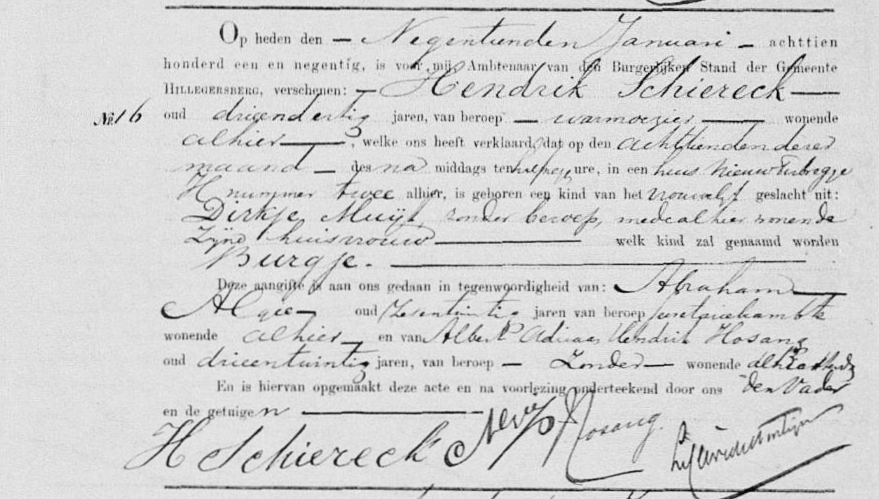 Op heden den — Negentienden Januari — achttien
honderd een en negentig, is voor mij Ambtenaar van den Burgerlijken Stand der Gemeente
HILLEGERSBERG, verschenen: — Hendrik Schiereck —
No. 16 oud drieendertig jaren, van beroep — warmoezier — wonende
alhier —, welke ons heeft verklaard, dat op den achttienden dezer
maand — des na middags ten half ure, in een huis Nieuw Terbregge
H nummer twee alhier, is geboren een kind van het vrouwelijk geslacht uit:
Dirkje Muijt, zonder beroep, mede alhier wonende
zijne huisvrouw — welk kind zal genaamd worden
Burgje. —
Deze aangifte is aan ons gedaan in tegenwoordigheid van: Abraham
oud zesentwintig jaren van beroep
wonende alhier — en van Albert Adriaan Hendrik Hosang
oud drieentwintig jaren, van beroep — Zonder — wonende
En is hiervan opgemaakt deze acte en na voorlezing onderteekend door ons den Vader
en de getuigen —
H Schiereck Hosang.